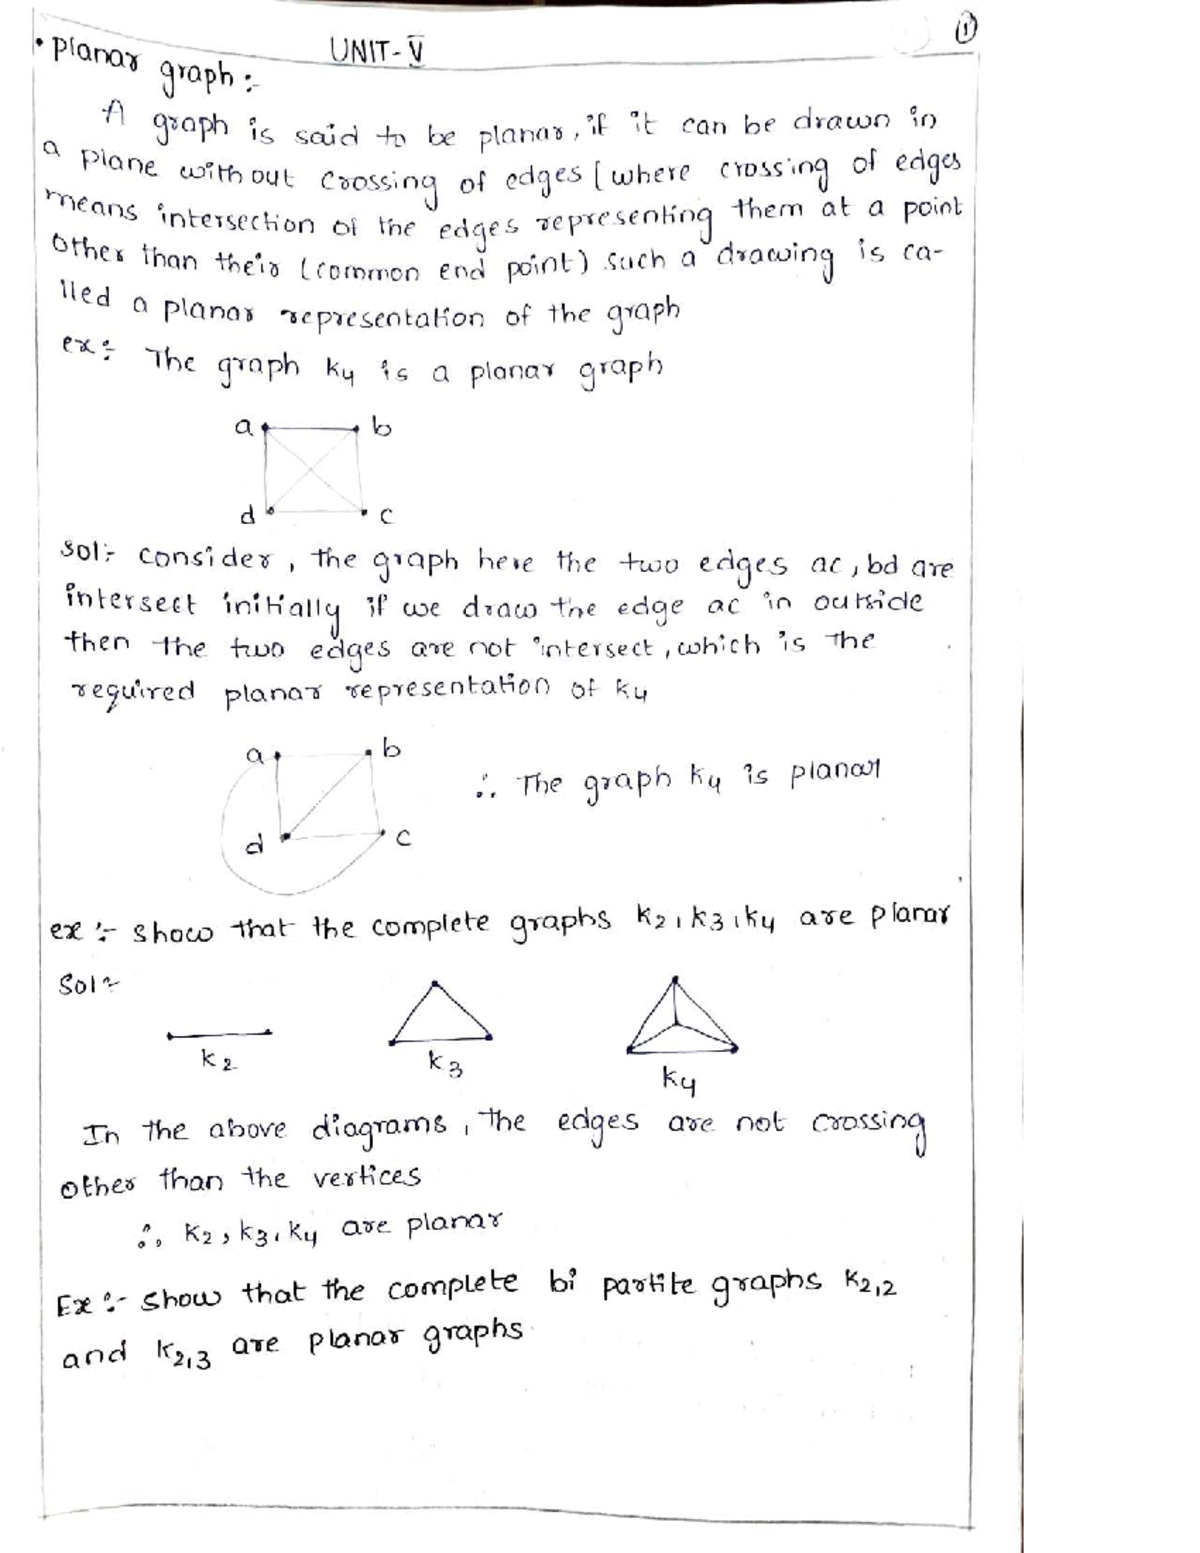 UNIT-V
1
• planar graph :-
A graph is said to be planar, if it can be drawn in
a plane without crossing of edges [where crossing of edges
means intersection of the edges representing them at a point
other than their (common end point) such a drawing is ca-
lled a planar representation of the graph
ex:- The graph K4 is a planar graph
a b
d c
Sol:- consider, the graph here the two edges ac, bd are
intersect initially if we draw the edge ac in outside
then the two edges are not intersect, which is the
required planar representation of K4
a b
∴ The graph K4 is planar
d c
ex:- show that the complete graphs K2, K3, K4 are planar
Sol:-
K2 K3 K4
In the above diagrams, the edges are not crossing
other than the vertices
∴ K2, K3, K4 are planar
Ex:- show that the complete bi partite graphs K2,2
and K2,3 are planar graphs.